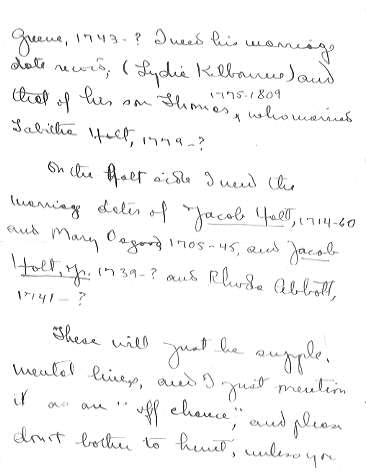 Greene, 1743-? I need his marriage
date record, (Lydia Kilbourne) and
that of his son Thomas, who married
1775-1809
Tabitha Holt, 1779-?
On the Holt side I need the
marriage dates of Jacob Holt, 1714-60
and Mary Osgood 1705-45, and Jacob
Holt, Jr. 1739-? and Rhoda Abbott,
1741-?
These will just be supple-
mental lines, and I just mention
it as an "off chance", and please
don't bother to hunt, unless you